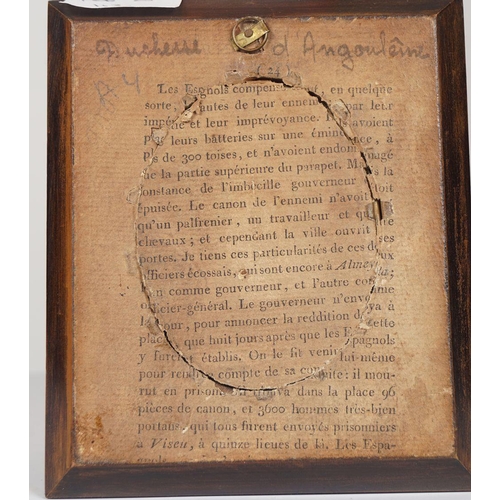 Duchesse d'Angoulême
A 4
(24)
Les Espagnols compens nt, en quelque
sorte, utes de leur ennemi par leur
impéritie et leur imprévoyance. Ils avoient
placé leurs batteries sur une éminence, à
plus de 300 toises, et n'avoient endommagé
que la partie supérieure du parapet. Mais la
constance de l'imbécille gouverneur étoit
épuisée. Le canon de l'ennemi n'avoit
qu'un palfrenier, un travailleur et quatre
chevaux; et cependant la ville ouvrit ses
portes. Je tiens ces particularités de ces deux
officiers écossais, qui sont encore à Almeyda;
un comme gouverneur, et l'autre comme
officier-général. Le gouverneur n'envoya à
la cour, pour annoncer la reddition de cette
place, que huit jours après que les Espagnols
y furent établis. On le fit venir lui-même
pour rendre compte de sa conduite: il mou-
rut en prison. On trouva dans la place 96
pièces de canon, et 3600 hommes très-bien
portans, qui tous furent envoyés prisonniers
à Viseu, à quinze lieues de là. Les Espa-